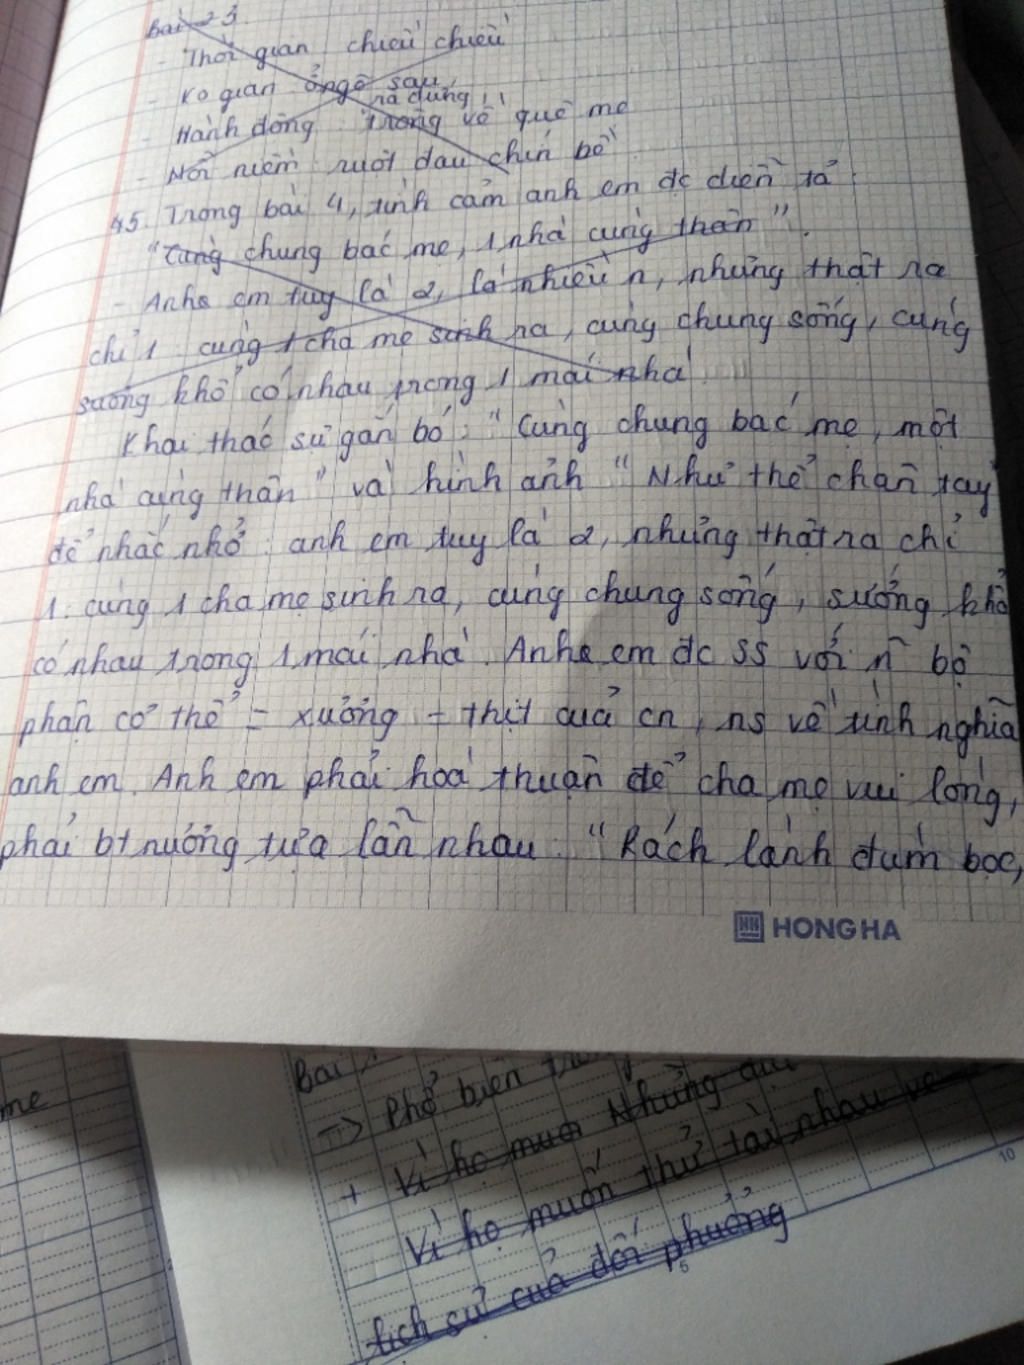 bài 23.
- Thời gian chiều chiều
- ko gian ở ngõ sau
ra đứng
- Hành động: trông về quê mẹ
- Nỗi niềm: ruột đau chín bề
45. Trong bài 4, tình cảm anh em đc diễn tả:
"Cùng chung bác mẹ, 1 nhà cùng thân".
- Anh em tuy là 2, là nhiều n, nhưng thật ra
chỉ 1: cùng 1 cha mẹ sinh ra, cùng chung sống, cùng
sướng khổ có nhau trong 1 mái nhà
Khai thác sự gắn bó: "Cùng chung bác mẹ, một
nhà cùng thân" và hình ảnh "Như thể chân tay
để nhắc nhở: anh em tuy là 2, nhưng thật ra chỉ
1: cùng 1 cha mẹ sinh ra, cùng chung sống, sướng khổ
có nhau trong 1 mái nhà. Anh em đc ss với n~ bộ
phận cơ thể = xương = thịt của cn, ns về tình nghĩa
anh em. Anh em phải hoà thuận để cha mẹ vui lòng,
phải bt nương tựa lẫn nhau: "Rách lành đùm bọc,
HONG HA
me
Bài
=> Phổ biến
+ Vì họ muốn Những
Vì họ muốn thử tài nhau về
lịch sử của đối phương
5
10